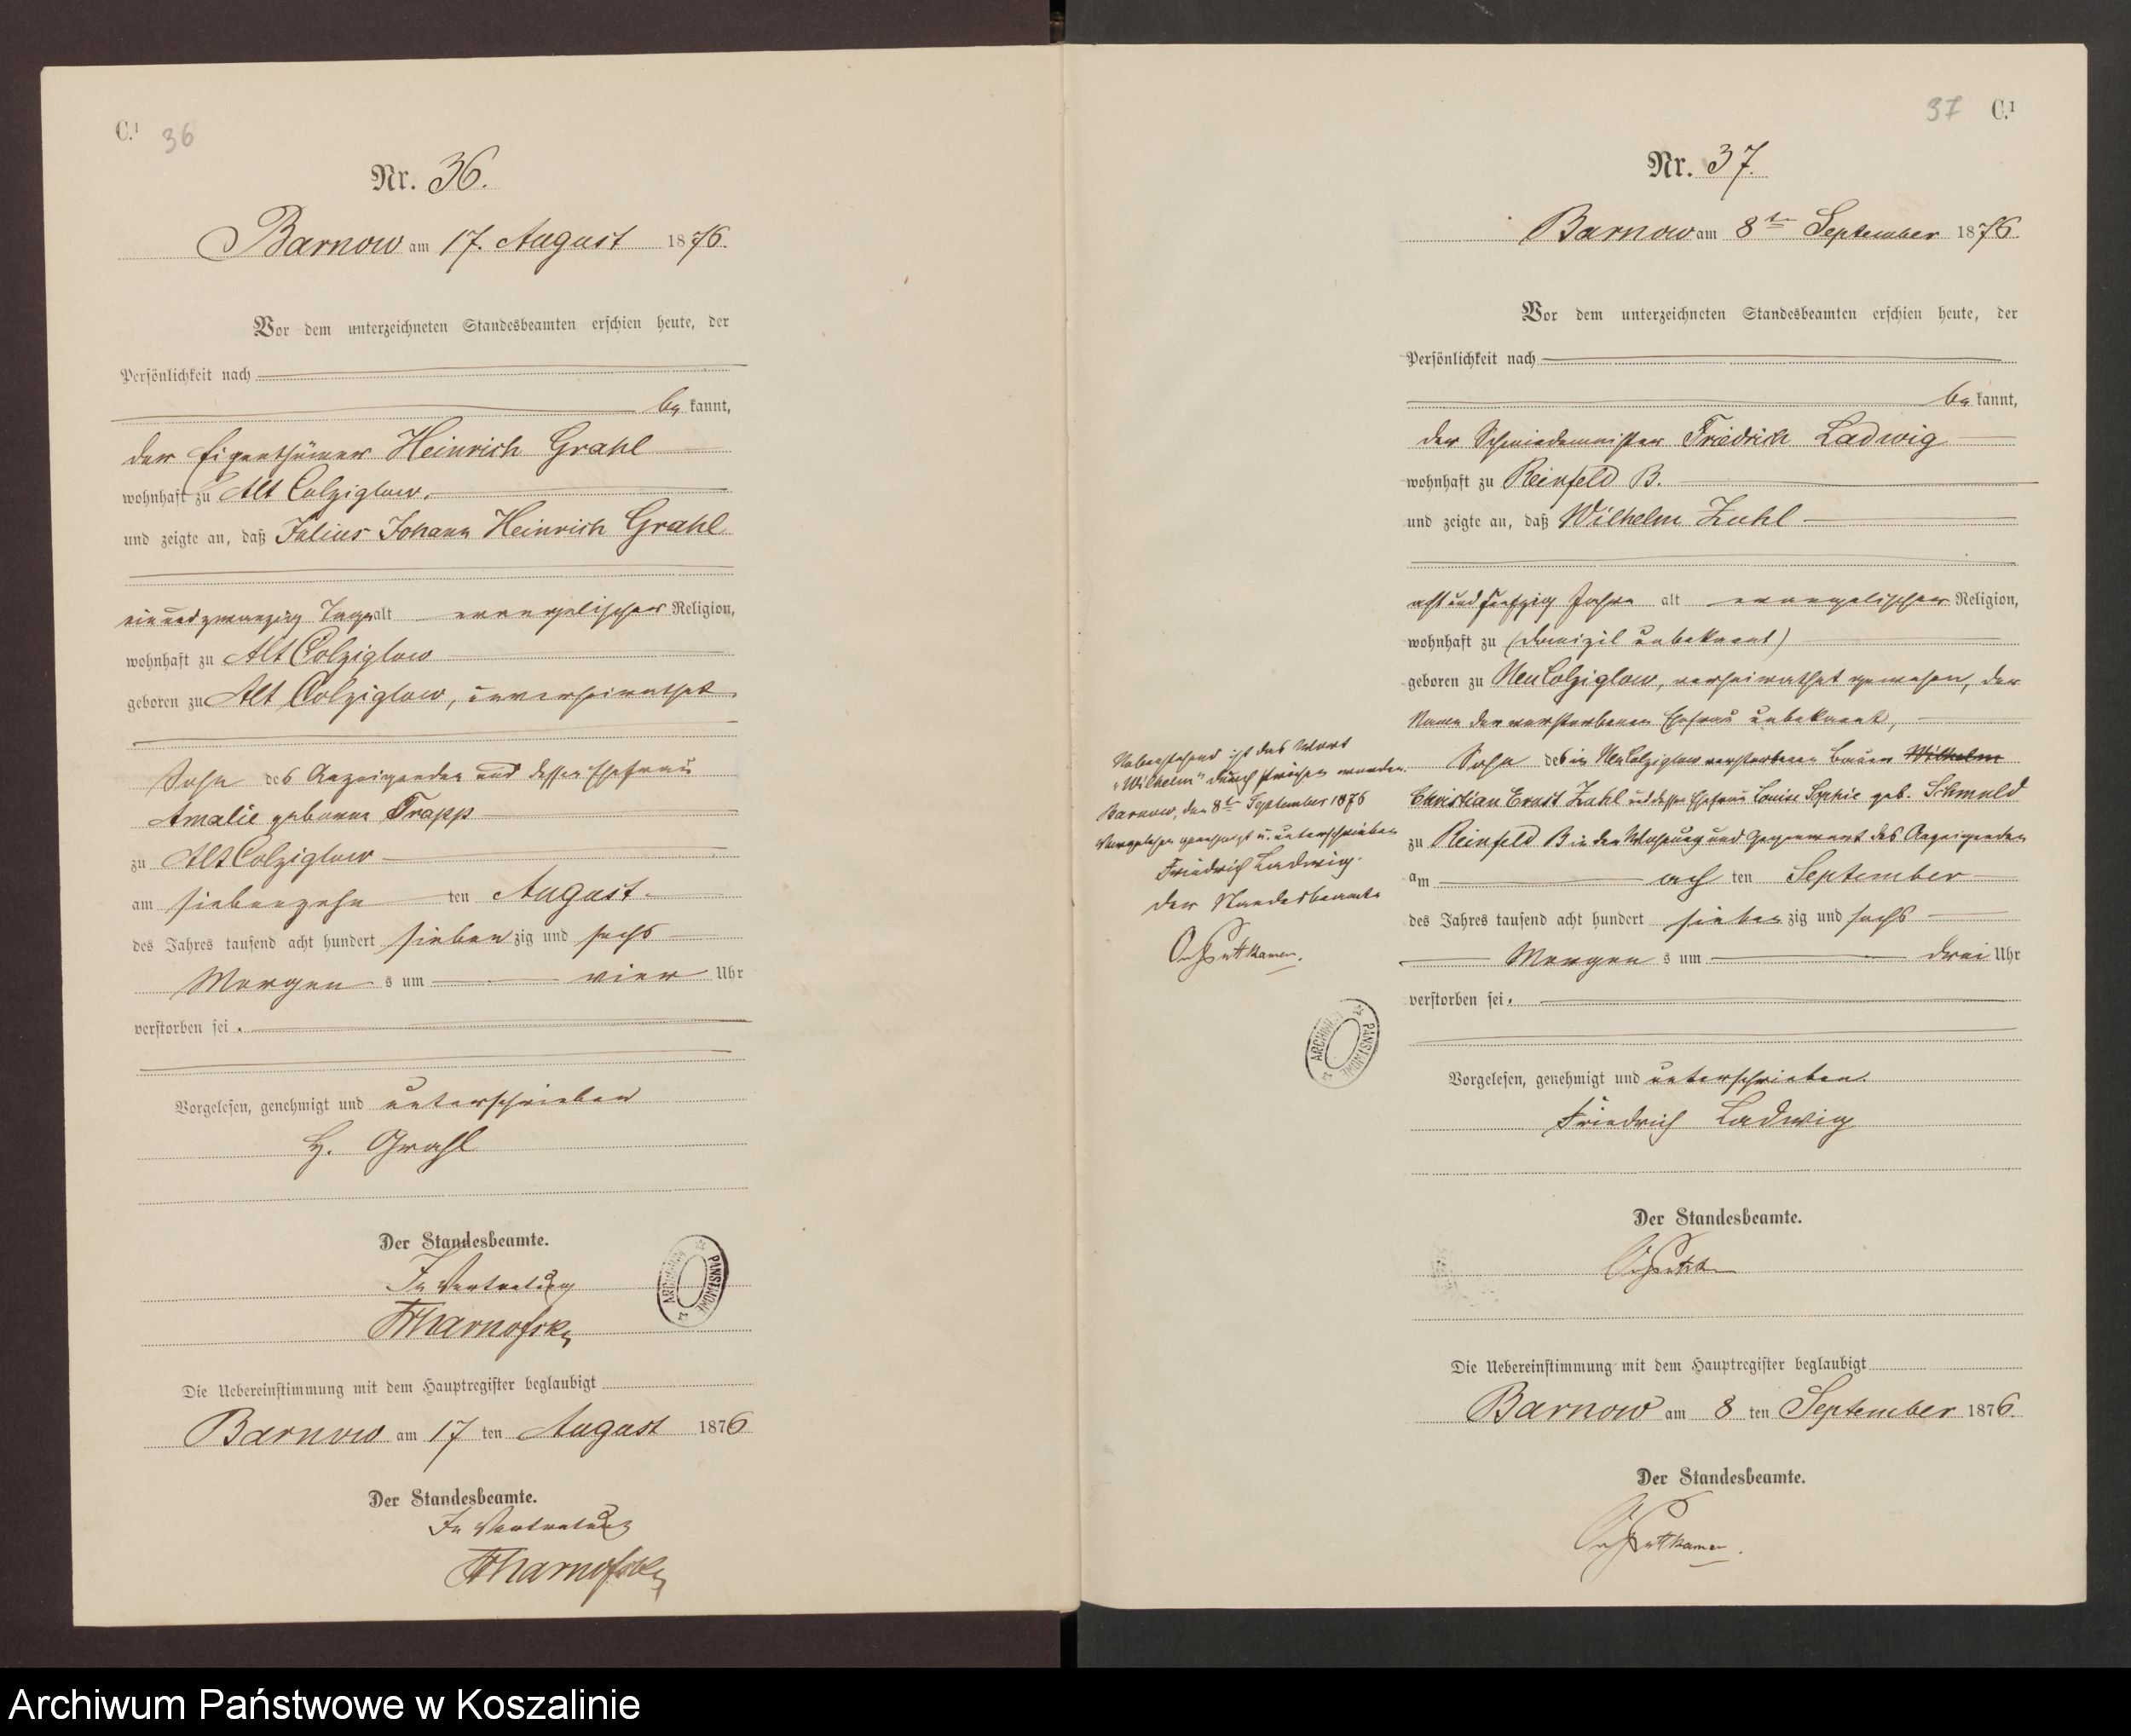 C.¹ 36
Nr. 36.
Barnow am 17. August 1876.
Vor dem unterzeichneten Standesbeamten erschien heute, der
Persönlichkeit nach
be kannt,
der Eigenthümer Heinrich Grahl
wohnhaft zu Alt Colziglow.
und zeigte an, daß Julius Johann Heinrich Grahl
einundzwanzig Tage alt evangelischer Religion,
wohnhaft zu Alt Colziglow
geboren zu Alt Colziglow, unverheirathet
Sohn des Anzeigenden und dessen Ehefrau
Amalie geborene Trapp
zu Alt Colziglow
am siebenzehn ten August
des Jahres tausend acht hundert sieben zig und sechs
Morgen s um vier Uhr
verstorben sei.
Vorgelesen, genehmigt und unterschrieben
H. Grahl
Der Standesbeamte.
In Vertretung
ARCHIWUM PAŃSTWOWE
Die Uebereinstimmung mit dem Hauptregister beglaubigt
Barnow am 17 ten August 1876
Der Standesbeamte.
In Vertretung
37 C.¹
Nr. 37.
Barnow am 8ten September 1876.
Vor dem unterzeichneten Standesbeamten erschien heute, der
Persönlichkeit nach
be kannt,
der Schmiedemeister Friedrich Ladwig
wohnhaft zu Reinfeld B.
und zeigte an, daß Wilhelm Zuhl
acht und funfzig Jahre alt evangelischer Religion,
wohnhaft zu (Domizil unbekannt)
geboren zu Neu Colziglow, verheirathet gewesen, der
Name der verstorbenen Ehefrau unbekannt,
Sohn des in Neu Colziglow verstorbenen Bauer Wilhelm
Christian Ernst Zuhl und dessen Ehefrau Louise Sophie geb. Schmuld
zu Reinfeld B in der Wohnung und Gegenwart des Anzeigenden
am ach ten September
des Jahres tausend acht hundert sieben zig und sechs
Morgen s um drei Uhr
verstorben sei.
Vorgelesen, genehmigt und unterschrieben.
Friedrich Ladwig
Der Standesbeamte.
Die Uebereinstimmung mit dem Hauptregister beglaubigt
Barnow am 8 ten September 1876.
Der Standesbeamte.
Puttkamer.
Nebenstehend ist das Wort
"Wilhelm" durchstrichen worden.
Barnow, den 8ten September 1876
Vorgelesen genehmigt u. unterschrieben
Friedrich Ladwig.
Der Standesbeamte
Puttkamer.
ARCHIWUM PAŃSTWOWE
Archiwum Państwowe w Koszalinie